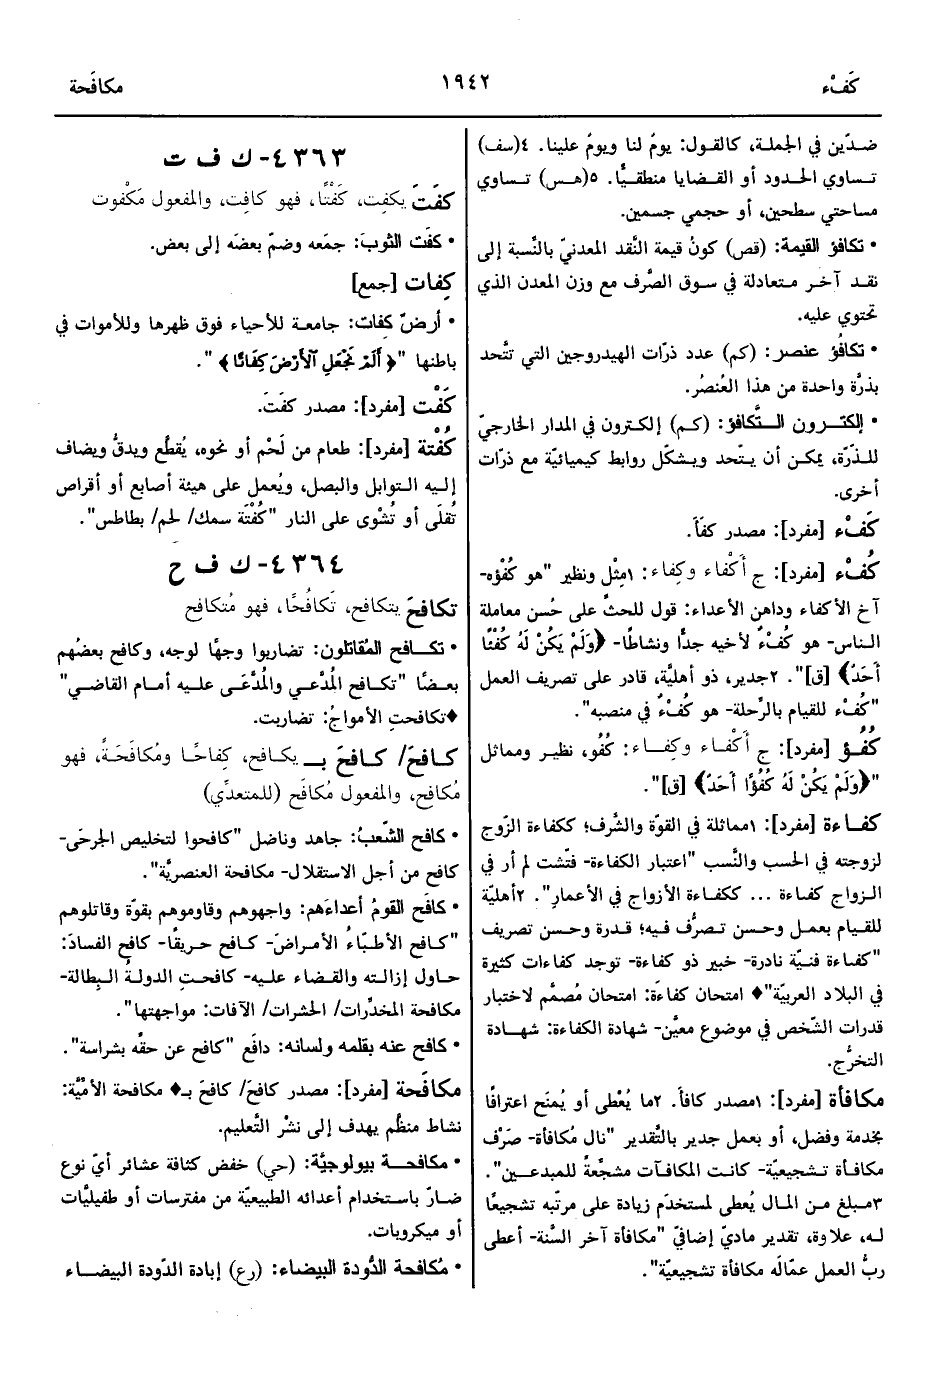 كَفْء
١٩٤٢
مكافَحة
ضدّين في الجملة، كالقول: يومٌ لنا ويومٌ علينا. ٤(سف)
تساوي الحدود أو القضايا منطقيًّا. ٥(هس) تساوي
مساحتي سطحين، أو حجمي جسمين.
• تكافؤ القيمة: (قص) كونُ قيمة النَّقد المعدنيّ بالنَّسبة إلى
نقد آخر متعادلة في سوق الصَّرف مع وزن المعدن الذي
تحتوي عليه.
• تكافُؤ عنصر: (كم) عدد ذرّات الهيدروجين التي تتَّحد
بذرَّة واحدة من هذا العُنصُر.
• إلكترون التَّكافؤ: (كم) إلكترون في المدار الخارجيّ
للذرّة، يمكن أن يتَّحد ويشكّل روابط كيميائيّة مع ذرّات
أخرى.
كَفْء [مفرد]: مصدر كفَأَ.
كُفْء [مفرد]: ج أَكْفاء وكِفاء: ١مِثْل ونظير "هو كُفْؤه-
آخ الأكفاء وداهن الأعداء: قول للحثّ على حُسن معاملة
الناس- هو كُفْءٌ لأخيه جدًّا ونشاطًا- ﴿وَلَمْ يَكُنْ لَهُ كُفْئًا
أَحَدٌ﴾ [ق]". ٢جدير، ذو أهليَّة، قادر على تصريف العمل
"كُفْء للقيام بالرِّحلة- هو كُفْءٌ في منصبه".
كُفُؤ [مفرد]: ج أَكْفاء وكِفاء: كُفُو، نظير ومماثل
"﴿وَلَمْ يَكُنْ لَهُ كُفُؤًا أَحَدٌ﴾ [ق]".
كفاءة [مفرد]: ١مماثلة في القوّة والشَّرف؛ ككفاءة الزّوج
لزوجته في الحسب والنَّسب "اعتبار الكفاءة- فتَّشت لم أر في
الزواج كفاءة ... ككفاءة الأزواج في الأعمارِ". ٢أهليَّة
للقيام بعمل وحسن تصرُّف فيه؛ قدرة وحسن تصريف
"كفاءة فنيّة نادرة- خبير ذو كفاءة- توجد كفاءات كثيرة
في البلاد العربيّة"♦ امتحان كفاءَة: امتحان مُصمَّم لاختبار
قدرات الشّخص في موضوع معيَّن- شهادة الكفاءة: شهادة
التخرُّج.
مكافأة [مفرد]: ١مصدر كافأَ. ٢ما يُعْطى أو يُمنَح اعترافًا
بخدمة وفضل، أو بعمل جدير بالتَّقدير "نال مُكافأة- صَرْف
مكافأة تشجيعيّة- كانت المكافآت مشجِّعةً للمبدعين".
٣مبلغ من المال يُعطى لمستخدَم زيادة على مرتّبه تشجيعًا
له، علاوة، تقدير ماديّ إضافيّ "مكافأة آخر السَّنة- أعطى
ربُّ العمل عمّاله مكافأة تشجيعيّة".
٤٣٦٣- ك ف ت
كفَتَ يكفِت، كَفْتًا، فهو كافِت، والمفعول مَكْفوت
• كفَت الثوبَ: جمَعه وضمّ بعضَه إلى بعض.
كِفات [جمع]
• أرضٌ كِفات: جامعة للأحياء فوق ظهرها وللأموات في
باطنها "﴿أَلَمْ نَجْعَلِ الْأَرْضَ كِفَاتًا﴾".
كَفْت [مفرد]: مصدر كفَتَ.
كُفْتة [مفرد]: طعام من لَحْم أو نحوه، يُقطَّع ويدقُّ ويضاف
إليه التوابل والبصل، ويُعمل على هيئة أصابع أو أقراص
تُقلَى أو تُشْوى على النار "كُفْتَة سمك/ لحم/ بطاطس".
٤٣٦٤- ك ف ح
تكافحَ يتكافح، تَكافُحًا، فهو مُتكافِح
• تكافح المُقاتلون: تضاربوا وجهًا لوجه، وكافح بعضُهم
بعضًا "تكافح المُدَّعي والمُدَّعَى عليه أمام القاضي"
♦تكافحتِ الأمواجُ: تضاربت.
كافحَ/ كافحَ بـ يكافح، كِفاحًا ومُكافَحَةً، فهو
مُكافِح، والمفعول مُكافَح (للمتعدِّي)
• كافح الشَّعبُ: جاهد وناضل "كافحوا لتخليص الجرحَى-
كافح من أجل الاستقلال- مكافحة العنصريَّة".
• كافح القومُ أعداءَهم: واجهوهم وقاوموهم بقوّة وقاتلوهم
"كافح الأطبّاءُ الأمراضَ- كافح حريقًا- كافح الفسادَ:
حاول إزالته والقضاء عليه- كافحتِ الدولةُ البِطالة-
مكافحة المخدّرات/ الحشرات/ الآفات: مواجهتها".
• كافح عنه بقلمه ولسانه: دافع "كافح عن حقّه بشراسة".
مكافَحة [مفرد]: مصدر كافحَ/ كافحَ بـ♦ مكافحة الأمّيَّة:
نشاط منظَّم يهدف إلى نشْر التَّعليم.
• مكافحة بيولوجيَّة: (حي) خفض كثافة عشائر أيّ نوع
ضارّ باستخدام أعدائه الطبيعيّة من مفترسات أو طفيليَّات
أو ميكروبات.
• مُكافحة الدُّودة البيضاء: (رع) إبادة الدّودة البيضاء